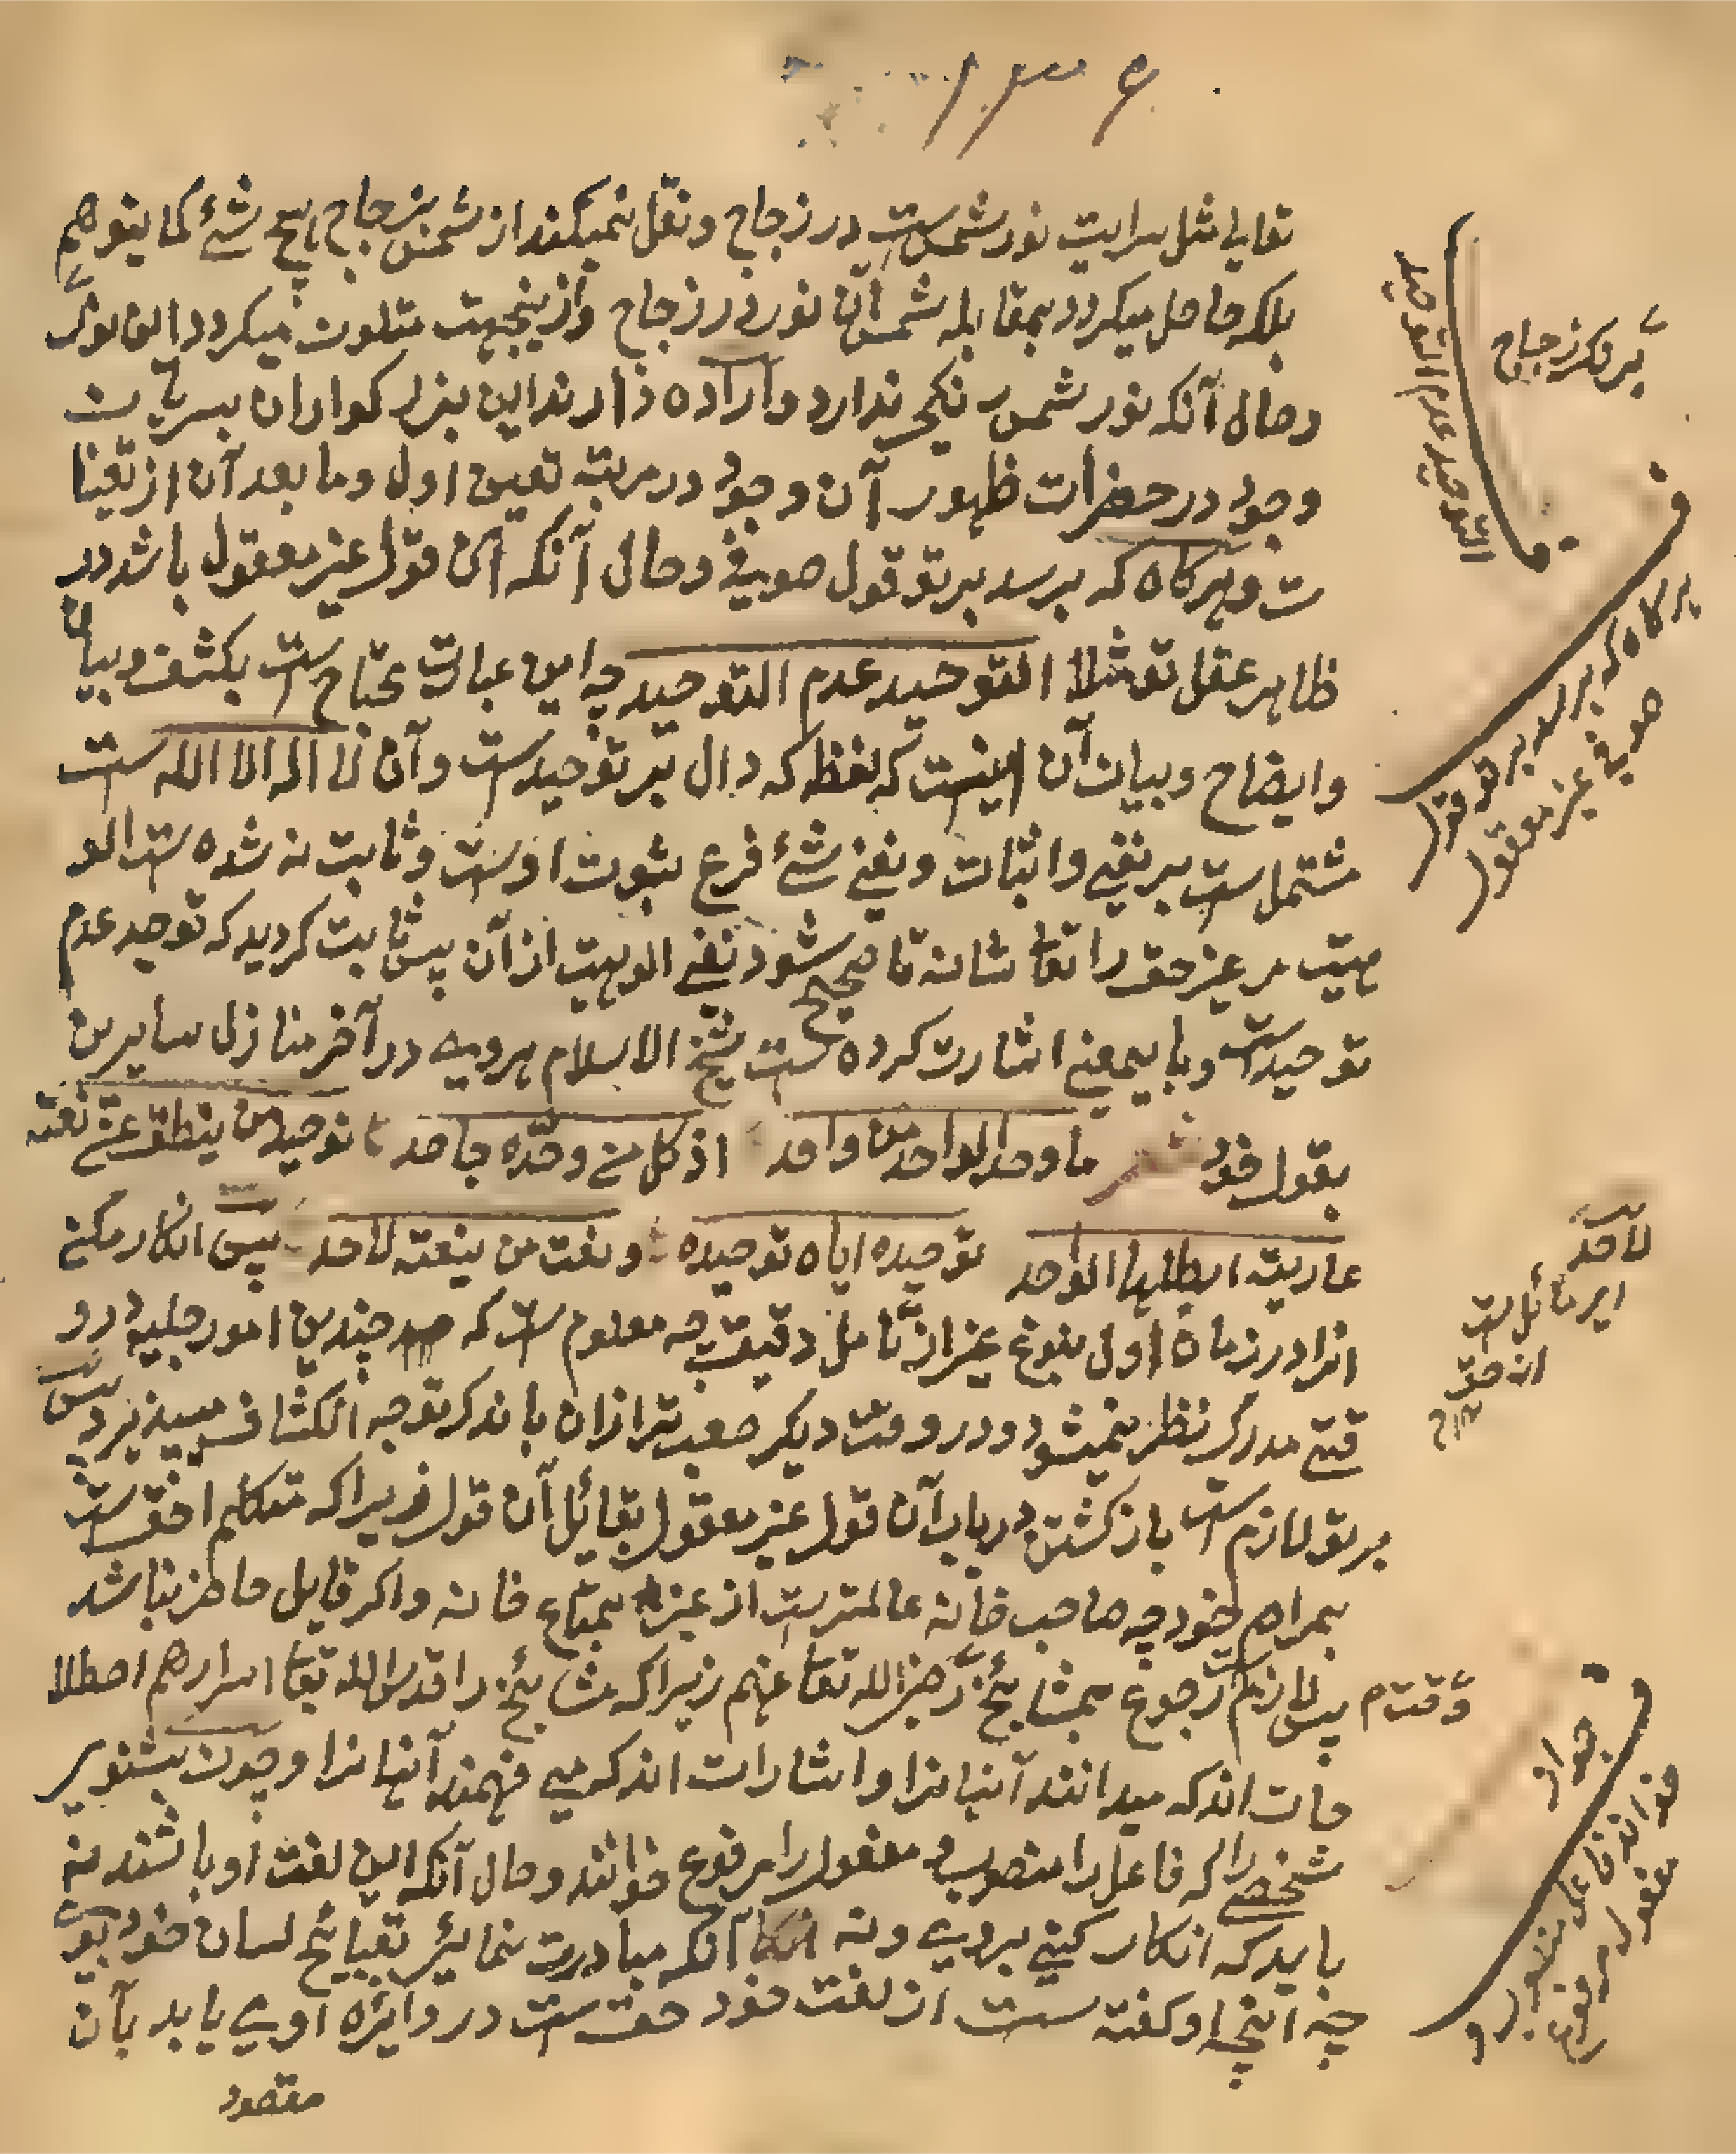 ۱۳۶
تعالی مثل سرایت نور شمس ست در زجاج و نقل نمیکند از شمس بزجاج هیچ شئ کما یتوهم
بلکه حاصل میکردد بمقابله شمس آن نور در زجاج و ازینجهت متلون میکردد این نور
و حال آنکه نور شمس رنکی ندارد و اراده دارند این بزرکواران بسریان
وجود در حضرات ظهور آن وجود در مرتبه تعین اول و ما بعد آن از تعینا
ت و هرکاه که برسد بر تو قول صوفی و حال آنکه آن قول غیر معقول باشد در
ظاهر عقل تو مثلا التوحید عدم التوحید چه این عبارت محتاج ست بکشف و بیان
و ایضاح و بیان آن اینست که لفظ که دال بر توحیدست و آن لا اله الا الله ست
مشتمل ست بر نفی و اثبات و نفی شئ فرع ثبوت اوست و ثابت نه شده ست الو
هیت مر غیر حق را تعا شانه تا صحیح شود نفی الوهیت از آن پس ثابت کردید که توحید عدم
توحیدست و باینمعنی اشارت کرده ست شیخ الاسلام هروی در آخر منازل سایرین
بقول خود شعر ما وحد الواحد من واحد اذ کل من وحّده جاحد توحید من ینطق عن نعته
عاریته ابطلها الواحد توحیده ایاه توحیده و نعت من ینعته لاحد پس انکار مکن
انرا در زمان اول بلوغ غیر از تامل دقیق چه معلوم ست که چندین امور جلیه در و
قتی مدرک نظر نمیشود و در وقت دیکر صعب تر ازان باندک توجه انکشاف میپذیرد پس
بر تو لازم ست باز کشتن در باب آن قول غیر معقول بقائل آن قول زیرا که متکلم احق ست
بمرام خود چه صاحب خانه عالمترست از غیر بمتاع خانه و اکر قایل حاضر نباشد
وقت م پس لازم ست رجوع بمشایخ رضی الله تعا عنهم زیرا که مشایخ را قدس الله تعا اسرارهم اصطلا
حات اند که میدانند آنها نرا و اشارات اند که می فهمند آنها نرا و چون بشنوی
شخصی را که فاعل را منصوب و مفعول را مرفوع خوانند و حال آنکه این لغت او باشد نه
باید که انکار کنی بروی و نه آنکه مبادرت نمائی بتقبایح لسان خود بوی
چه انچه او کفته ست از لغت خود حق ست در دایره اوی یابد بآن
مقصود
بر وکر زجاج
التوحید عدم التوحید
هرکاه که برسد بر تو قول
صوفی غیر معقول
لاحد
ای مائل ست
از حق
جواز
خواند فاعل منصوب و
مفعول مرفوع